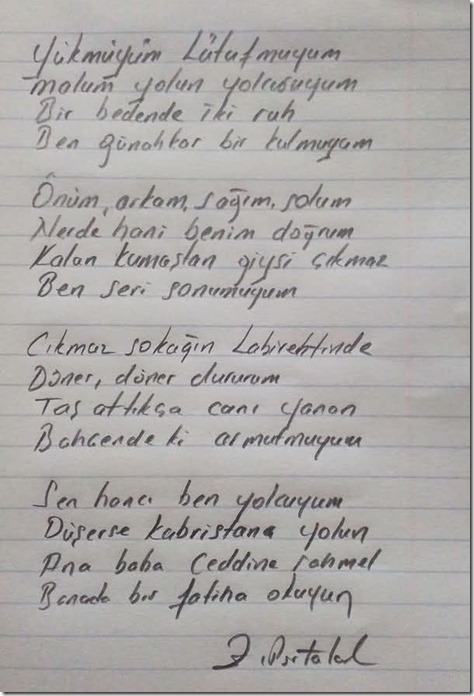 Yükmüyüm Lütufmuyum
malum yolun yolcusuyum
Bir bedende iki ruh
Ben günahkar bir kulmuyum
Önüm, arkam, sağım, solum
Nerde hani benim doğrum
Kalan kumaştan giysi çıkmaz
Ben seri sonumuyum
Cıkmaz sokağın Labirentinde
Döner, döner dururum
Taş attıkça canı yanan
Bahcendeki armutmuyum
Sen hancı ben yolcuyum
Düşerse kabristana yolun
Ana baba Ceddine rahmet
Banada bir fatiha okuyun